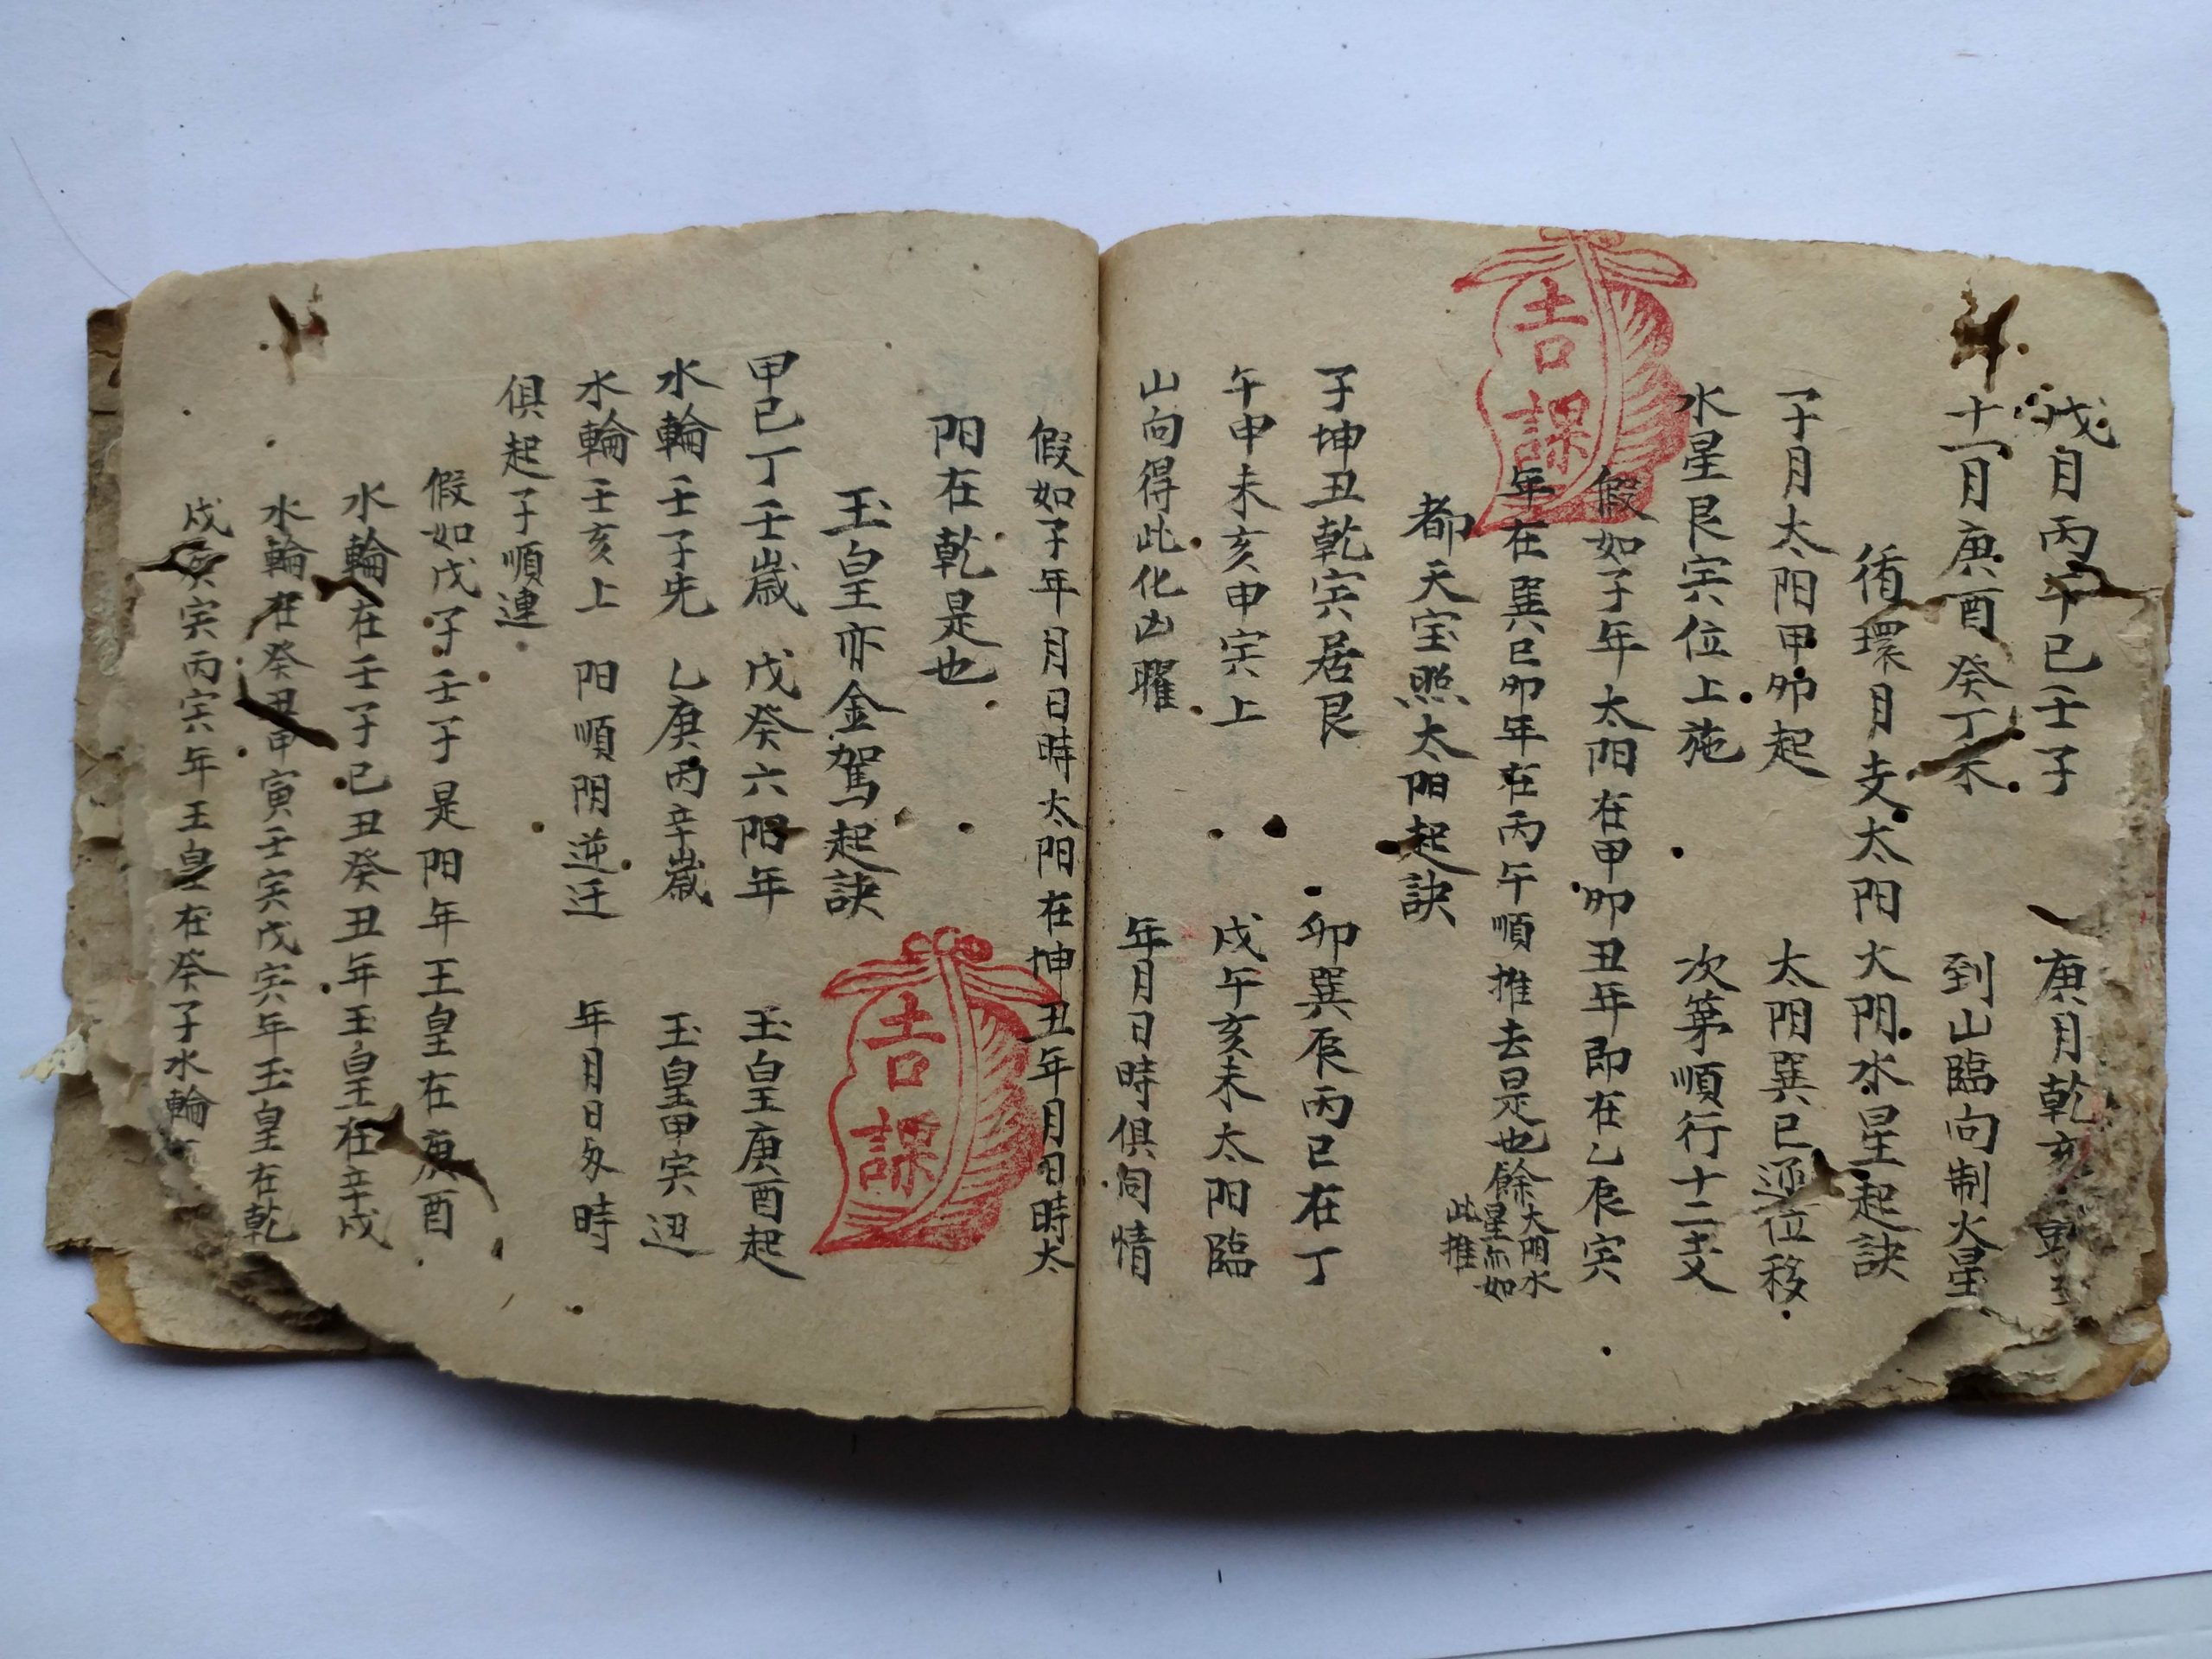 戌月丙午巳壬子　庚月乾亥
十一月庚酉癸丁未　到山臨向制火星
循環月支太阳火阴水星起訣
子月太阳甲卯起　太阳巽巳逆位移
水星艮宾位上施　次第順行十二支
假如子年太阳在甲卯丑年即在乙辰宾
年在巽巳卯年在丙午順推去是也餘太阴水星亦如此推
都天宝照太阳起訣
子坤丑乾宾居艮　卯巽辰丙巳在丁
午申未亥申宾上　戌午亥未太阳臨
山向得此化凶曜　年月日時俱同情
吉課
假如子年月日時太阳在坤丑年月日時太
阳在乾是也
玉皇亦金駕起訣
甲己丁壬歲戊癸六阳年　玉皇庚酉起
水輪壬子先乙庚丙辛歲　玉皇甲宾迊
水輪壬亥上阳順阴逆迁　年月日匆時
俱起子順連
假如戊子壬子是阳年玉皇在庚酉
水輪在壬子己丑癸丑年玉皇在辛戌
水輪在癸丑甲寅壬宾戊宾年玉皇在乾
戌宾丙宾年玉皇在癸子水輪
吉課